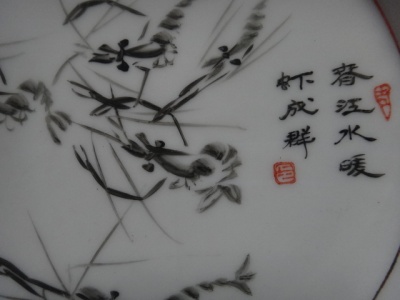 春江水暖
虾成群